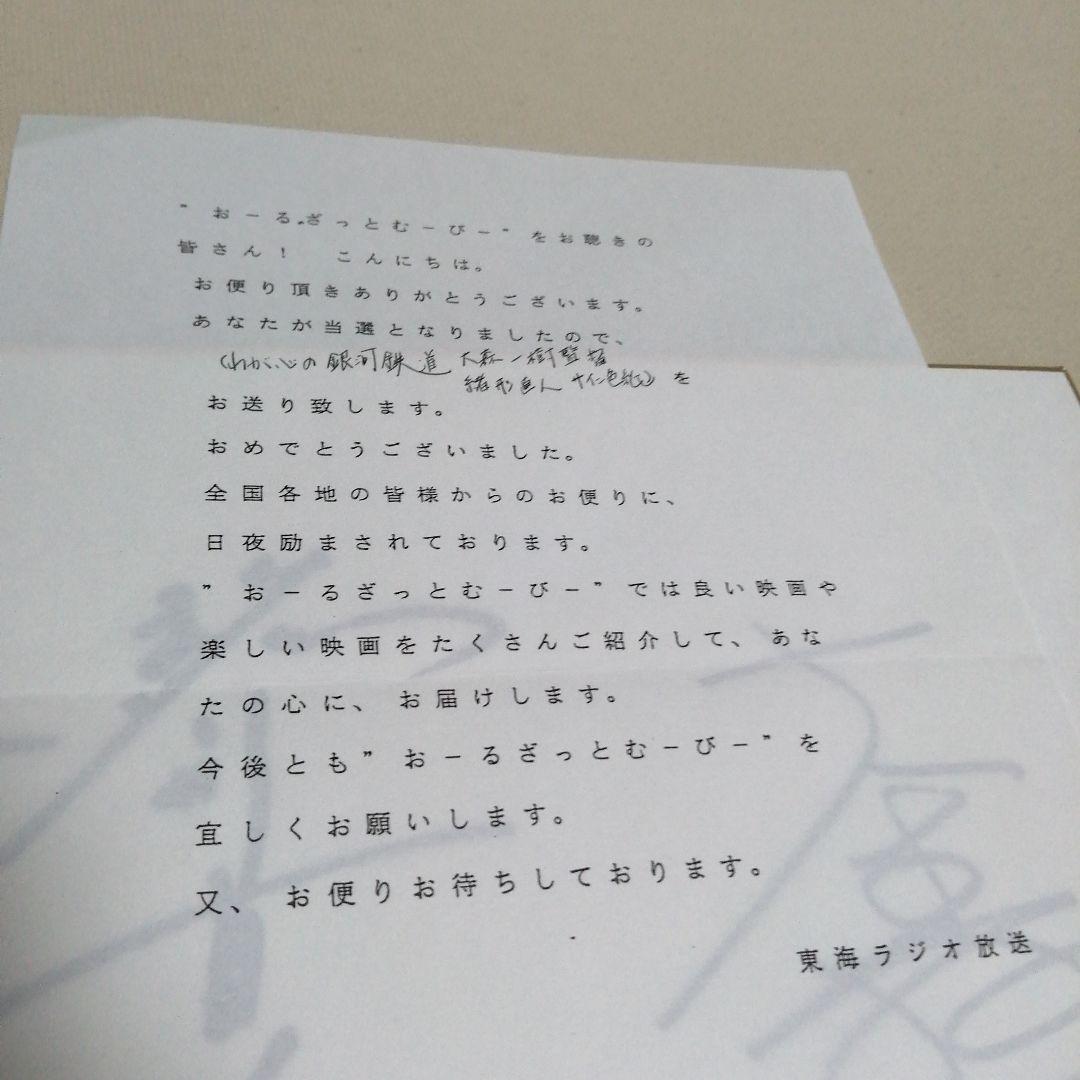 ”おーる.ざっとむーびー”をお聴きの
皆さん！　こんにちは。
お便り頂きありがとうございます。
あなたが当選となりましたので、
（わが心の銀河鉄道　大森一樹監督
緒形直人　サイン色紙）を
お送り致します。
おめでとうございました。
全国各地の皆様からのお便りに、
日夜励まされております。
”おーるざっとむーびー”では良い映画や
楽しい映画をたくさんご紹介して、あな
たの心に、お届けします。
今後とも”おーるざっとむーびー”を
宜しくお願いします。
又、お便りお待ちしております。
東海ラジオ放送